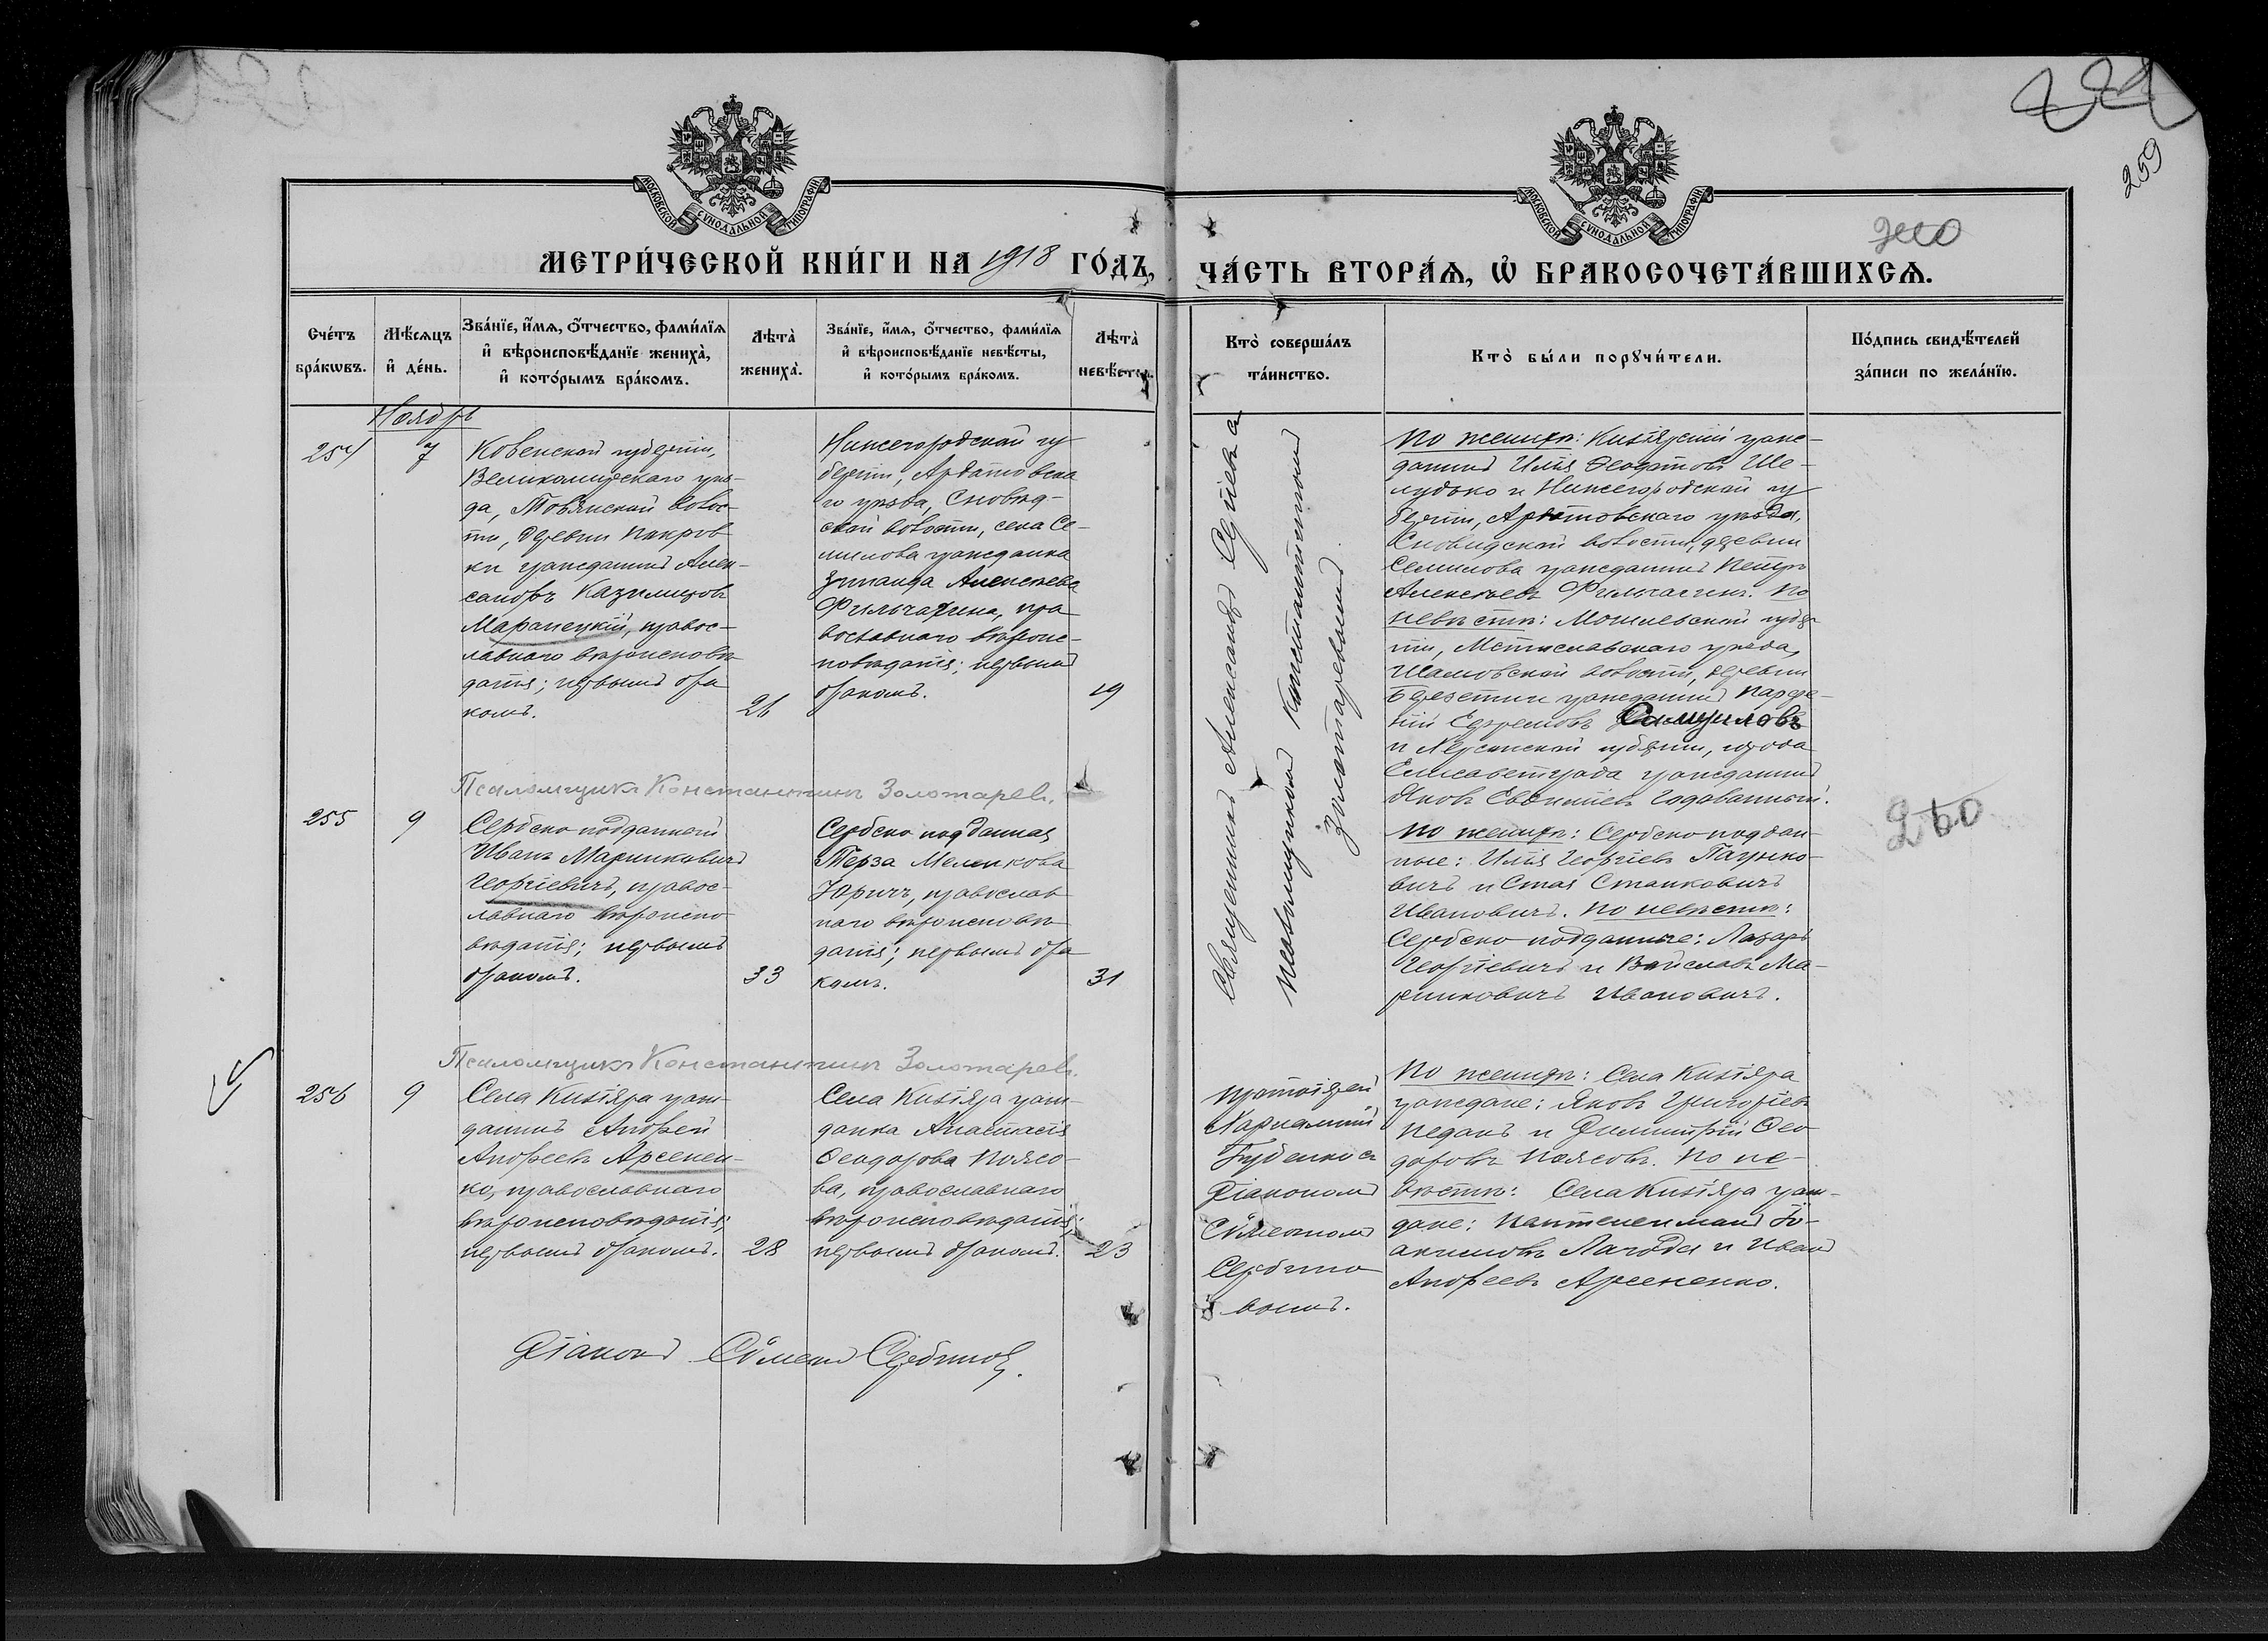 259
МОСКОВСКОЙ СѴНОДАЛЬНОЙ ТИПОГРАФІИ
МОСКОВСКОЙ СѴНОДАЛЬНОЙ ТИПОГРАФІИ
МЕТРИ́ЧЕСКОЙ КНИ́ГИ НА 1918 ГО́ДЪ,
ЧА́СТЬ ВТОРА́Ѧ, Ѡ҆ БРАКОСОЧЕТА́ВШИХСѦ.
Сче́тъ бра́кѡвъ.
Мѣ́сѧцъ и҆ де́нь.
Зва́нїе, и҆́мѧ, ѻ҆́тчество, фами́лїѧ
и҆ вѣроисповѣ́данїе жениха̀,
и҆ кото́рымъ бра́комъ.
Лѣта̀ жениха̀.
Зва́нїе, и҆́мѧ, ѻ҆́тчество, фами́лїѧ
и҆ вѣроисповѣ́данїе невѣ́сты,
и҆ кото́рымъ бра́комъ.
Лѣта̀ невѣ́сты.
Кто̀ соверша́лъ та́инство.
Кто̀ бы́ли порꙋчи́тели.
По́дпись свидѣ́телей за́писи по жела́нїю.
Ноябрь
254
7
Ковенской губерніи,
Вилкомирскаго уѣз-
да, Товянской волос-
ти, деревни Покров
ки гражданинъ Алек-
сандръ Казимировъ
Марапецкій, правос-
лавнаго вѣроисповѣ-
данія; первымъ бра
комъ.
26
Нижегородской гу
берніи, Ардатовска
го уѣзда, Сновед-
ской волости, села Се-
милова гражданка
Зинаида Алексѣева
Фильчагина, пра
вославнаго вѣроис-
повѣданія; первымъ
бракомъ.
19
Священникъ Александръ Сергіевъ съ
псаломщикомъ Константиномъ
Золотаревымъ.
По женихѣ: Кизіярскій граж-
данинъ Илія Ѳеодотовъ Ше-
лудько и Нижегородской гу
берніи, Ардатовскаго уѣзда,
Сноведской волости, деревни
Семилова гражданинъ Петръ
Алексѣевъ Фильчагинъ. По
невѣстѣ: Могилевской губер
ніи, Мстиславскаго уѣзда,
Шамовской волости, деревни
гражданинъ Парфе-
ній Ефремовъ Самуиловъ
и Херсонской губерніи, города
Елисаветграда гражданинъ
Яковъ Годованный.
Псаломщикъ Константинъ Золотаревъ.
255
9
Сербско подданный
Иванъ Маринковичъ
Георгіевичъ, правос-
лавнаго вѣроиспо-
вѣданія; первымъ
бракомъ.
33
Сербско подданная
Терза Меленкова
Юричъ, православ
наго вѣроисповѣ-
данія; первымъ бра
комъ.
31
По женихѣ: Сербско поддан-
ные: Илія Георгіевъ Паунко-
вичъ и Стая Станковичъ
Ивановичъ. По невѣстѣ:
Сербско подданные: Лазарь
Георгіевичъ и Войславъ Ма-
ринковичъ Ивановичъ.
260
Псаломщикъ Константинъ Золотаревъ.
256
9
Села Кизіяра граж-
данинъ Андрей
Андреевъ Арсенен-
ко, православнаго
вѣроисповѣданія;
первымъ бракомъ.
28
Села Кизіяра граж-
данка Анастасія
Ѳеодорова Поясо-
ва, православнаго
вѣроисповѣданія;
первымъ бракомъ.
23
Протоіерей
Харлампій
съ
Діакономъ
Сѵмеономъ
Сербино
вымъ.
По женихѣ: Села Кизіяра
граждане: Яковъ Григорьевъ
Педанъ и Димитрій Ѳео
доровъ Поясовъ. По не-
вѣстѣ: Села Кизіяра граж-
дане: Пантелеимонъ Іо-
акимовъ Лагода и Иванъ
Андреевъ Арсененко.
Діаконъ Сѵмеонъ Сербиновъ.